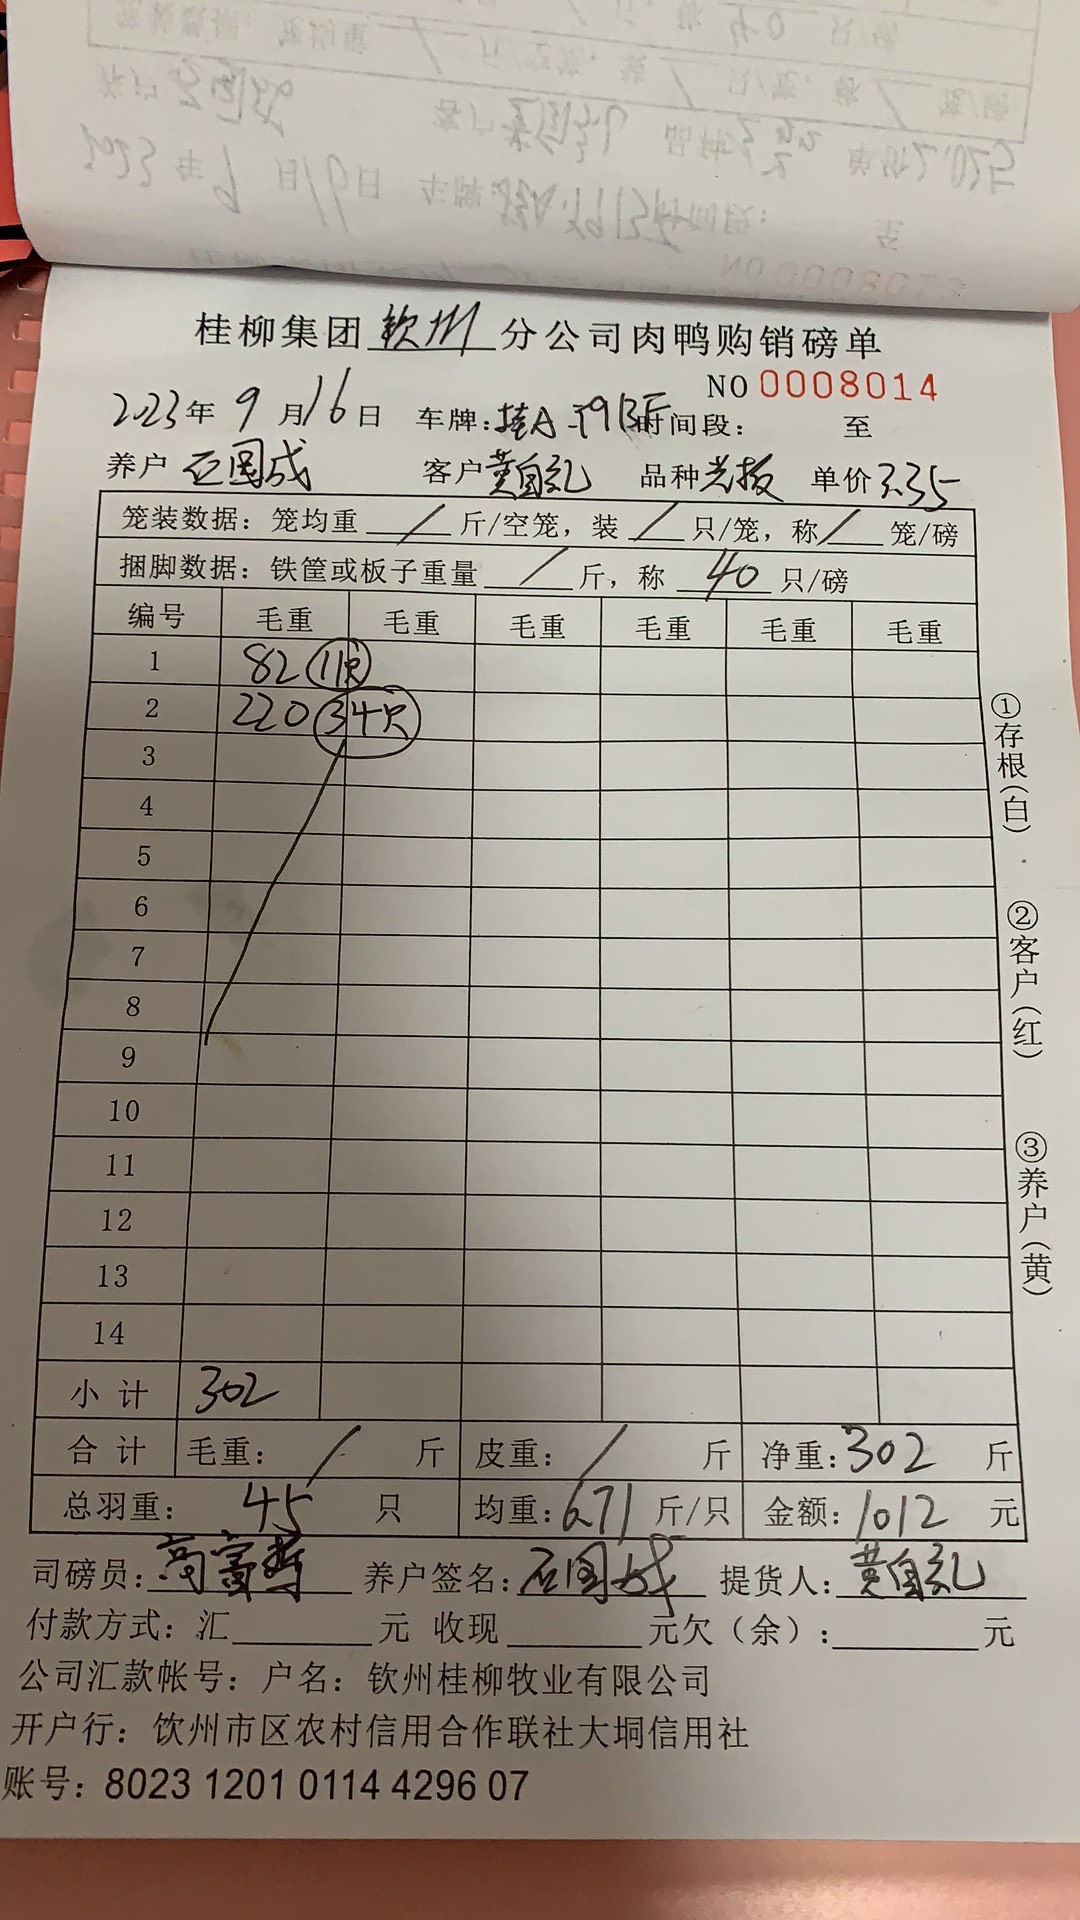 桂柳集团钦州分公司肉鸭购销磅单
NO 0008014
2023年 9月16日 车牌: 时间段: 至
养户 石国成 客户 黄自礼 品种 单价 3.35
笼装数据: 笼均重 / 斤/空笼, 装 / 只/笼, 称 / 笼/磅
捆脚数据: 铁筐或板子重量 / 斤, 称 40 只/磅
编号 毛重 毛重 毛重 毛重 毛重 毛重
1 82 11只
2 220 34只
3
4
5
6
7
8
9
10
11
12
13
14
小计 302
合计 毛重: / 斤 皮重: / 斤 净重: 302 斤
总羽重: 45 只 均重: 6.71 斤/只 金额: 1012 元
司磅员: 养户签名: 石国成 提货人: 黄自礼
付款方式: 汇 元 收现 元欠(余): 元
公司汇款帐号: 户名: 钦州桂柳牧业有限公司
开户行: 钦州市区农村信用合作联社大垌信用社
账号: 8023 1201 0114 4296 07
①存根(白)
②客户(红)
③养户(黄)